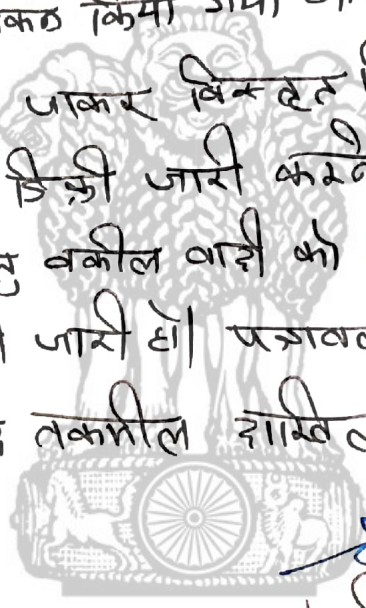 किया गया
पाकर विस्तृत
डिक्री जारी करने
वकील वादी को
जारी हो। पत्रावल
तकमील दाखिल